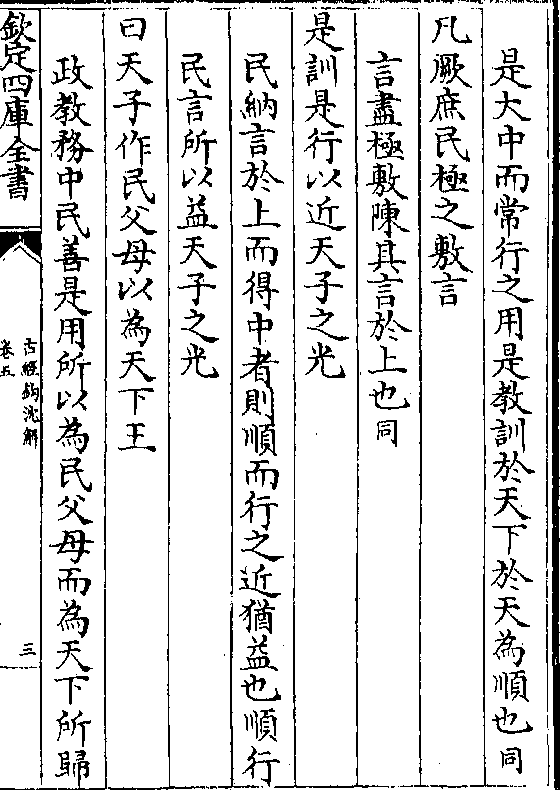 是大中而常行之用是教訓於天下於天為順也同
凡厥庶民極之敷言
言盡極敷陳其言於上也同
是訓是行以近天子之光
民納言於上而得中者則順而行之近猶益也順行
民言所以益天子之光
曰天子作民父母以為天下王
政教務中民善是用所以為民父母而為天下所歸
欽定四庫全書
古經鉤沈解
卷五
三